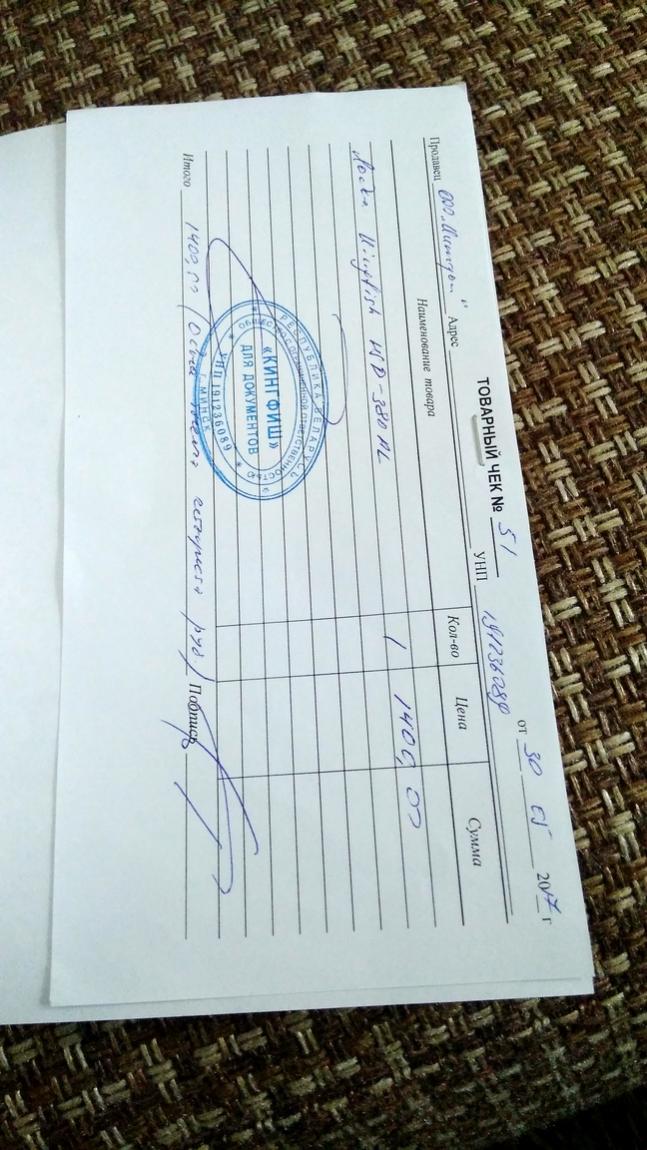 ТОВАРНЫЙ ЧЕК № 51 от 30 05 2017 г
Продавец ООО Адрес УНП 191236089
Наименование товара Кол-во Цена Сумма
Лодка Kingfish 1 1400,00
РЕСПУБЛИКА БЕЛАРУСЬ
ОБЩЕСТВО С ОГРАНИЧЕННОЙ ОТВЕТСТВЕННОСТЬЮ
«КИНГФИШ»
ДЛЯ ДОКУМЕНТОВ
УНП 191236089
г. МИНСК
Итого 1400,00 (Одна тысяча четыреста руб) Подпись